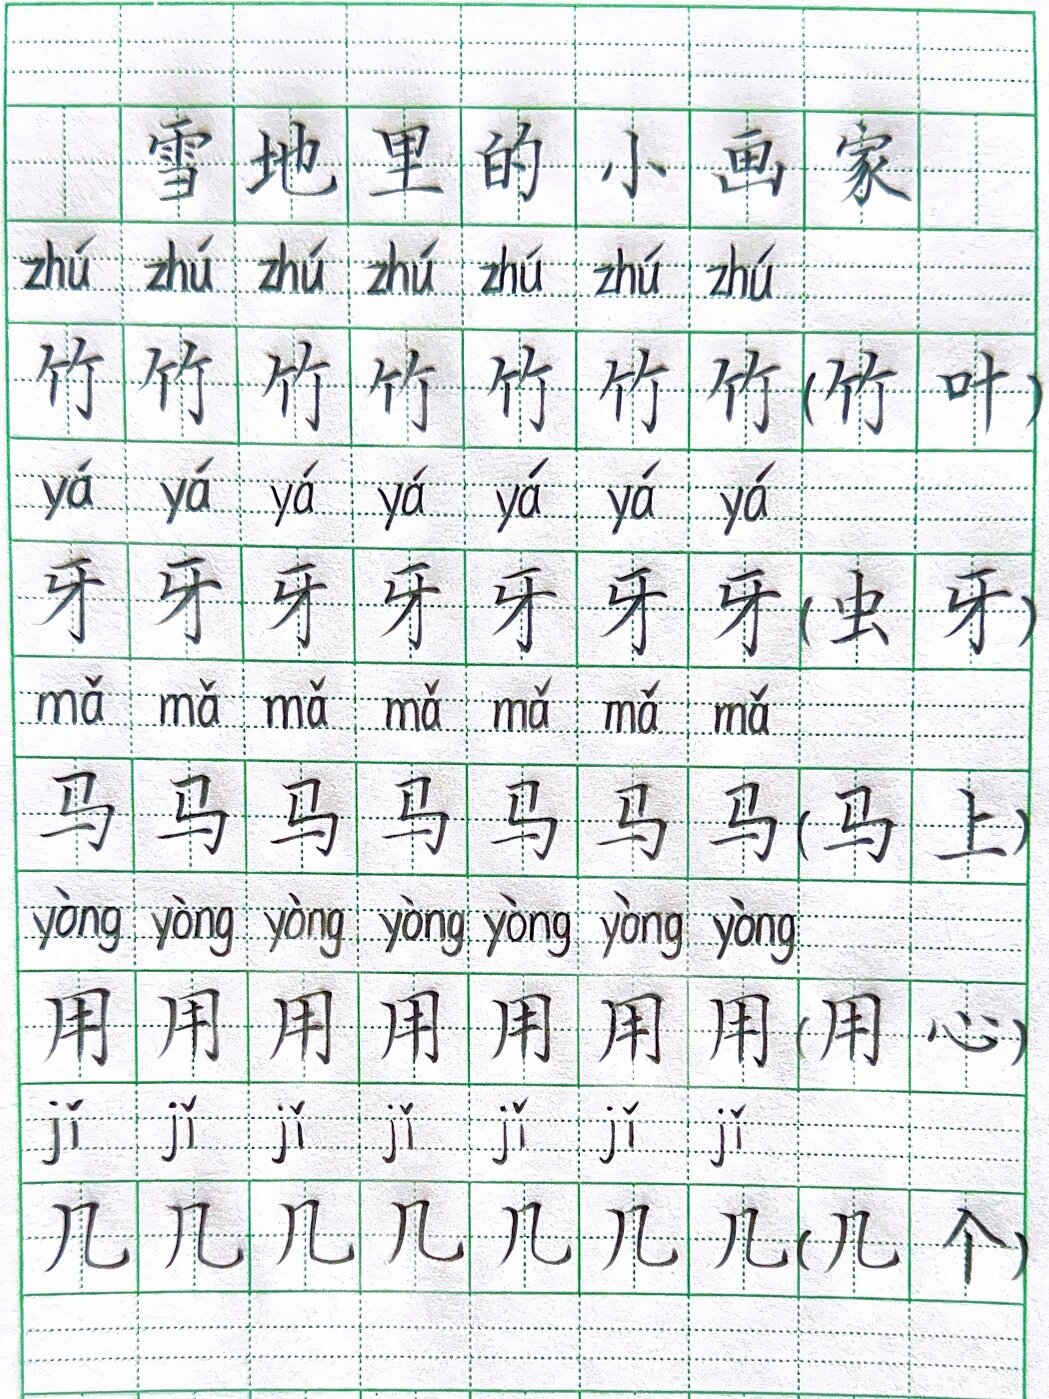 雪地里的小画家
zhú zhú zhú zhú zhú zhú zhú
竹 竹 竹 竹 竹 竹 竹 (竹 叶)
yá yá yá yá yá yá yá
牙 牙 牙 牙 牙 牙 牙 (虫 牙)
mǎ mǎ mǎ mǎ mǎ mǎ mǎ
马 马 马 马 马 马 马 (马 上)
yòng yòng yòng yòng yòng yòng yòng
用 用 用 用 用 用 用 (用 心)
jǐ jǐ jǐ jǐ jǐ jǐ jǐ
几 几 几 几 几 几 几 (几 个)